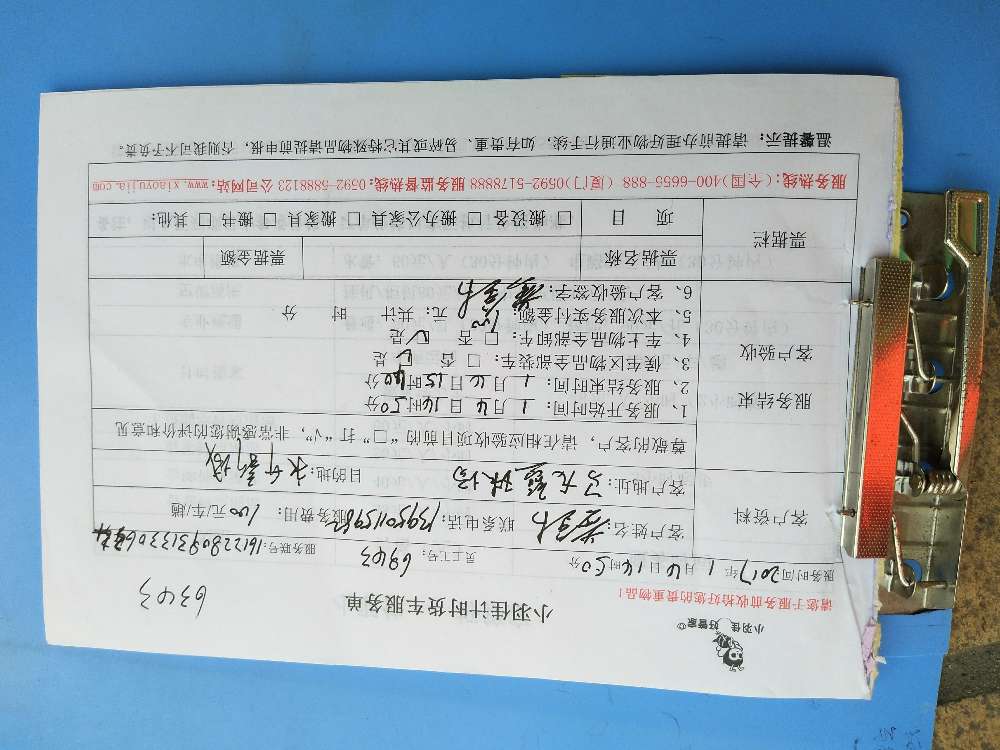 小羽佳 好管家©
小羽佳计时货车服务单
6343
请您于服务前收拾好您的贵重物品！
服务时间2017年1月6日14时50分 员工工号：6343 服务联号：
客户资料
客户姓名： 联系电话： 服务费用：100元/车/趟
客户地址： 目的地：
尊敬的客户，请在相应验收项目前的“□”打“√”，非常感谢您的评价和意见
服务结束
客户验收
1、服务开始时间：1月6日14时50分
2、服务结束时间：1月6日15时40分
3、候车区物品全部装车：□否 √是
4、车上物品全部卸车：□否 √是
5、本次服务实付金额：100元；共计 时 分
6、客户验收签字：
票据栏
票据名称 票据金额
项 目 □搬设备 □搬办公家具 □搬家具 □搬书 □其他：
服务热线：（全国）400-6655-888（厦门）0592-5178888 服务监督热线：0592-5888123 公司网站：www.xiaoyujia.com
温馨提示：请提前办理好物业通行手续，如有贵重、易碎或其它特殊物品请提前申报，否则我司可不予负责。